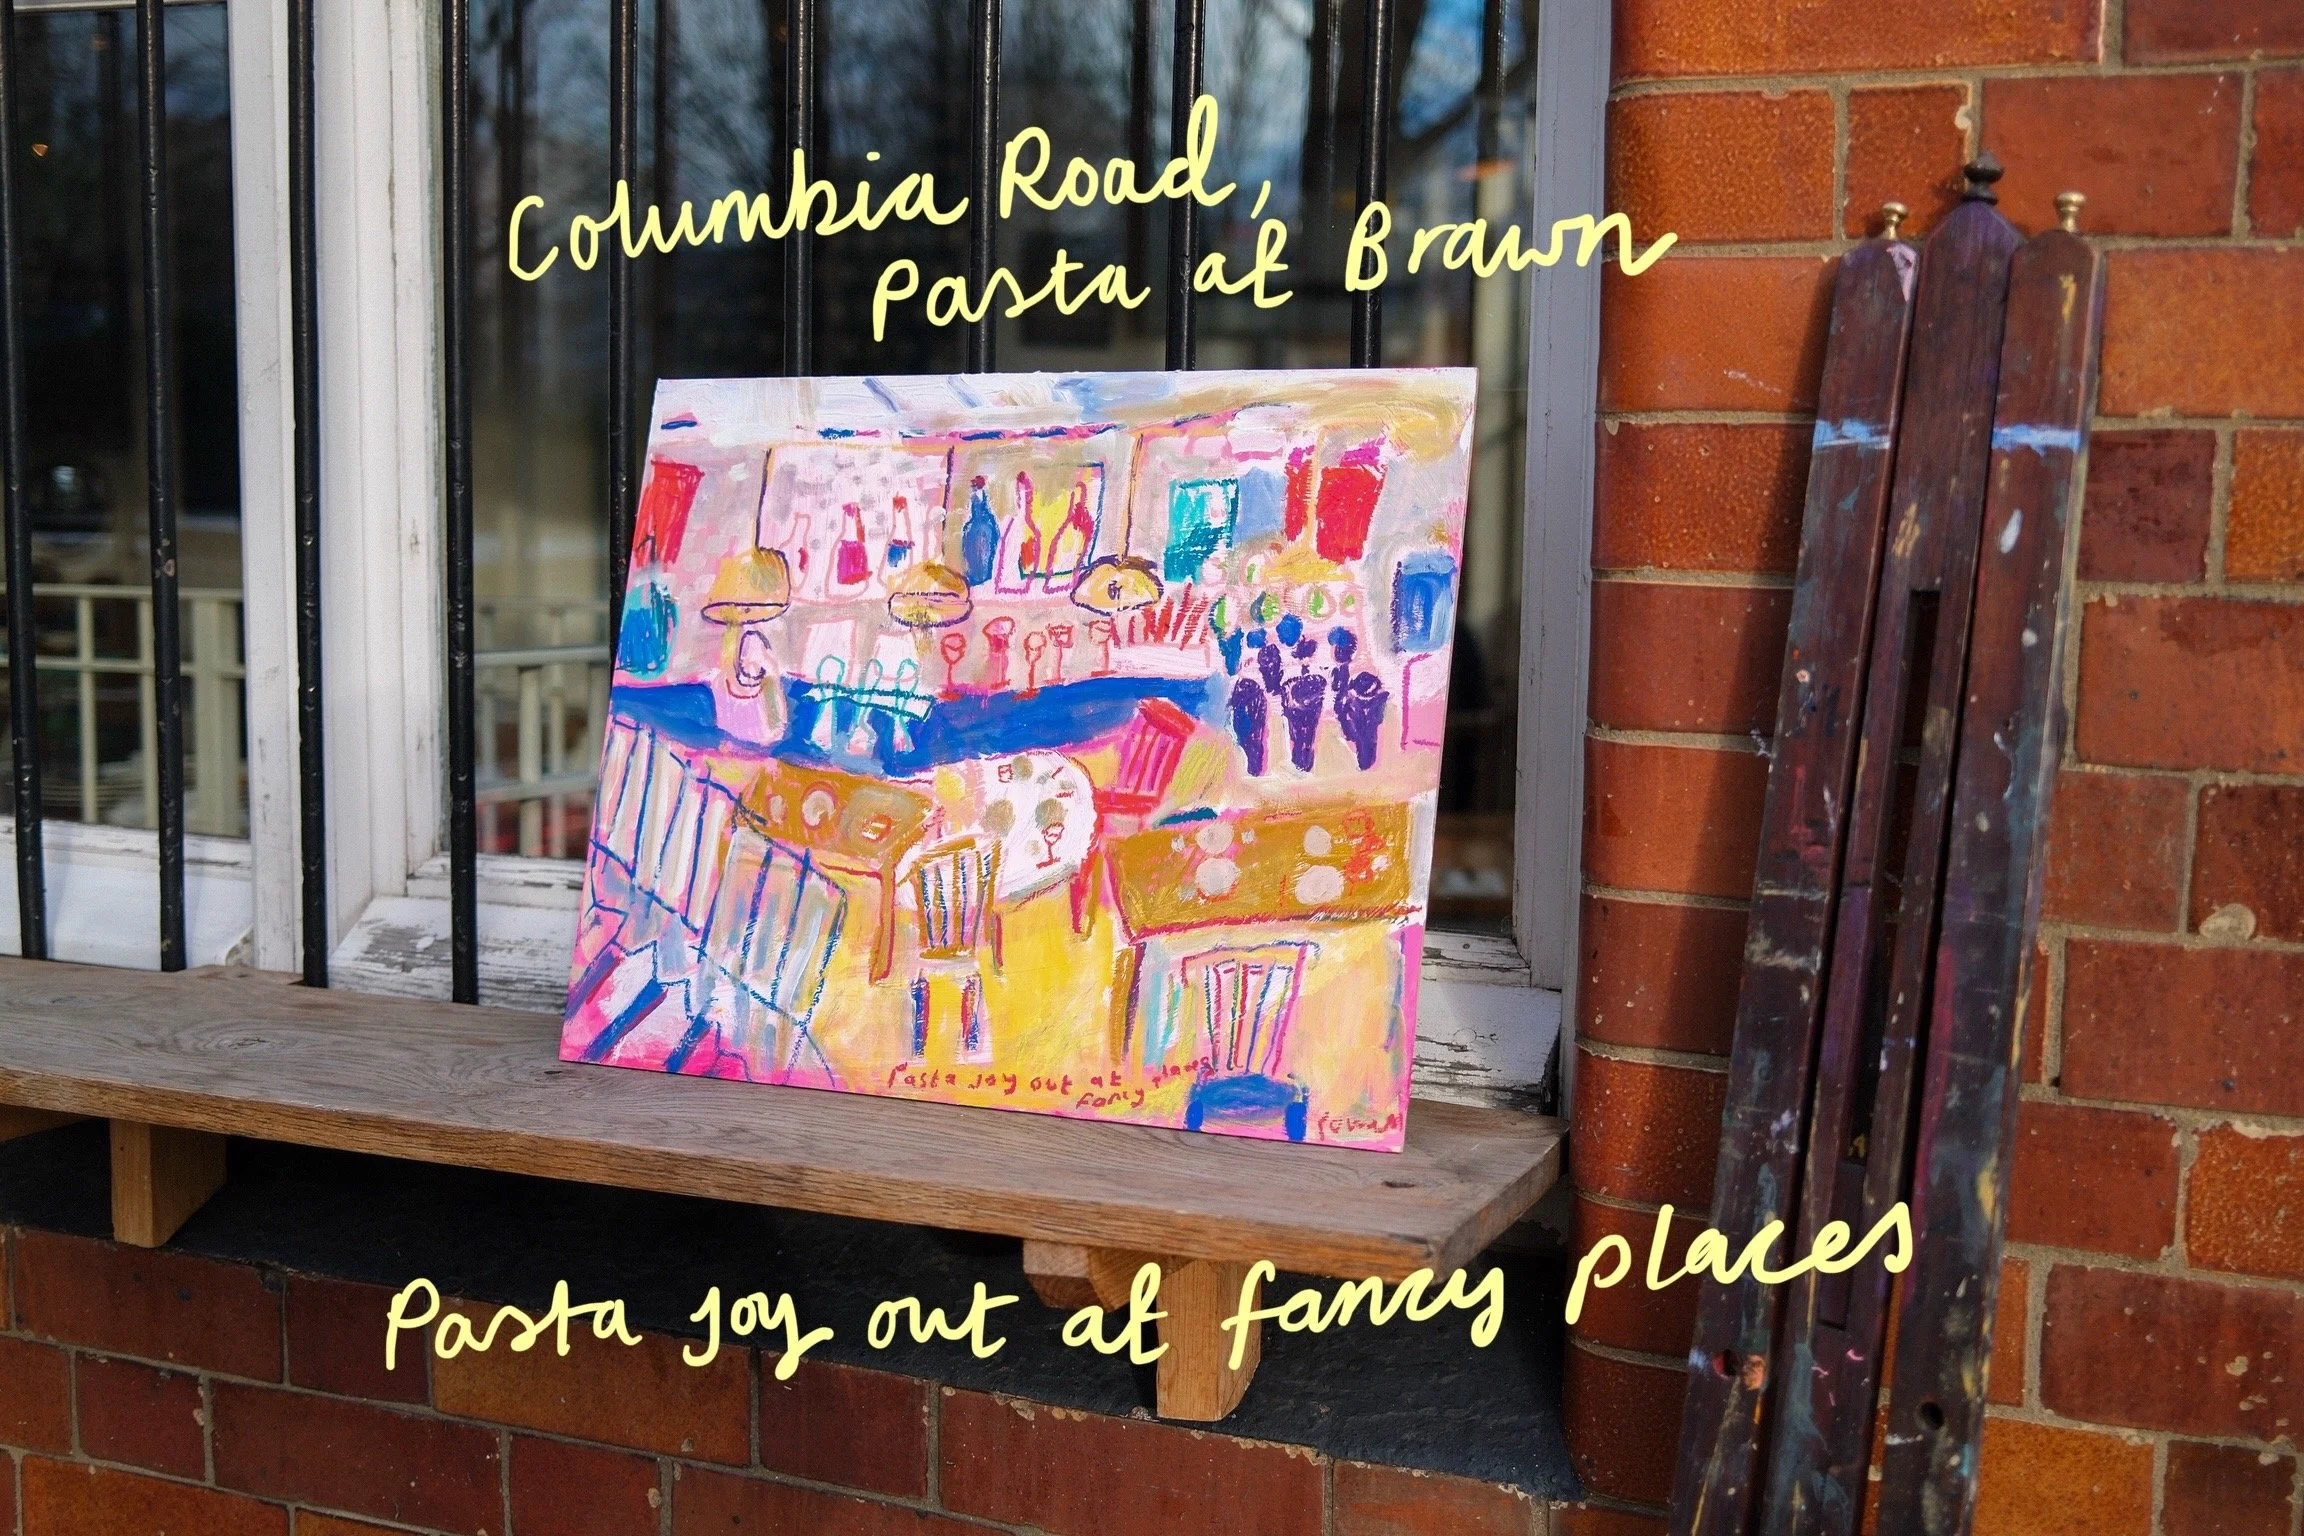 Columbia Road,
Pasta at Brawn
Pasta joy out at places
fancy
Pasta joy out at fancy places